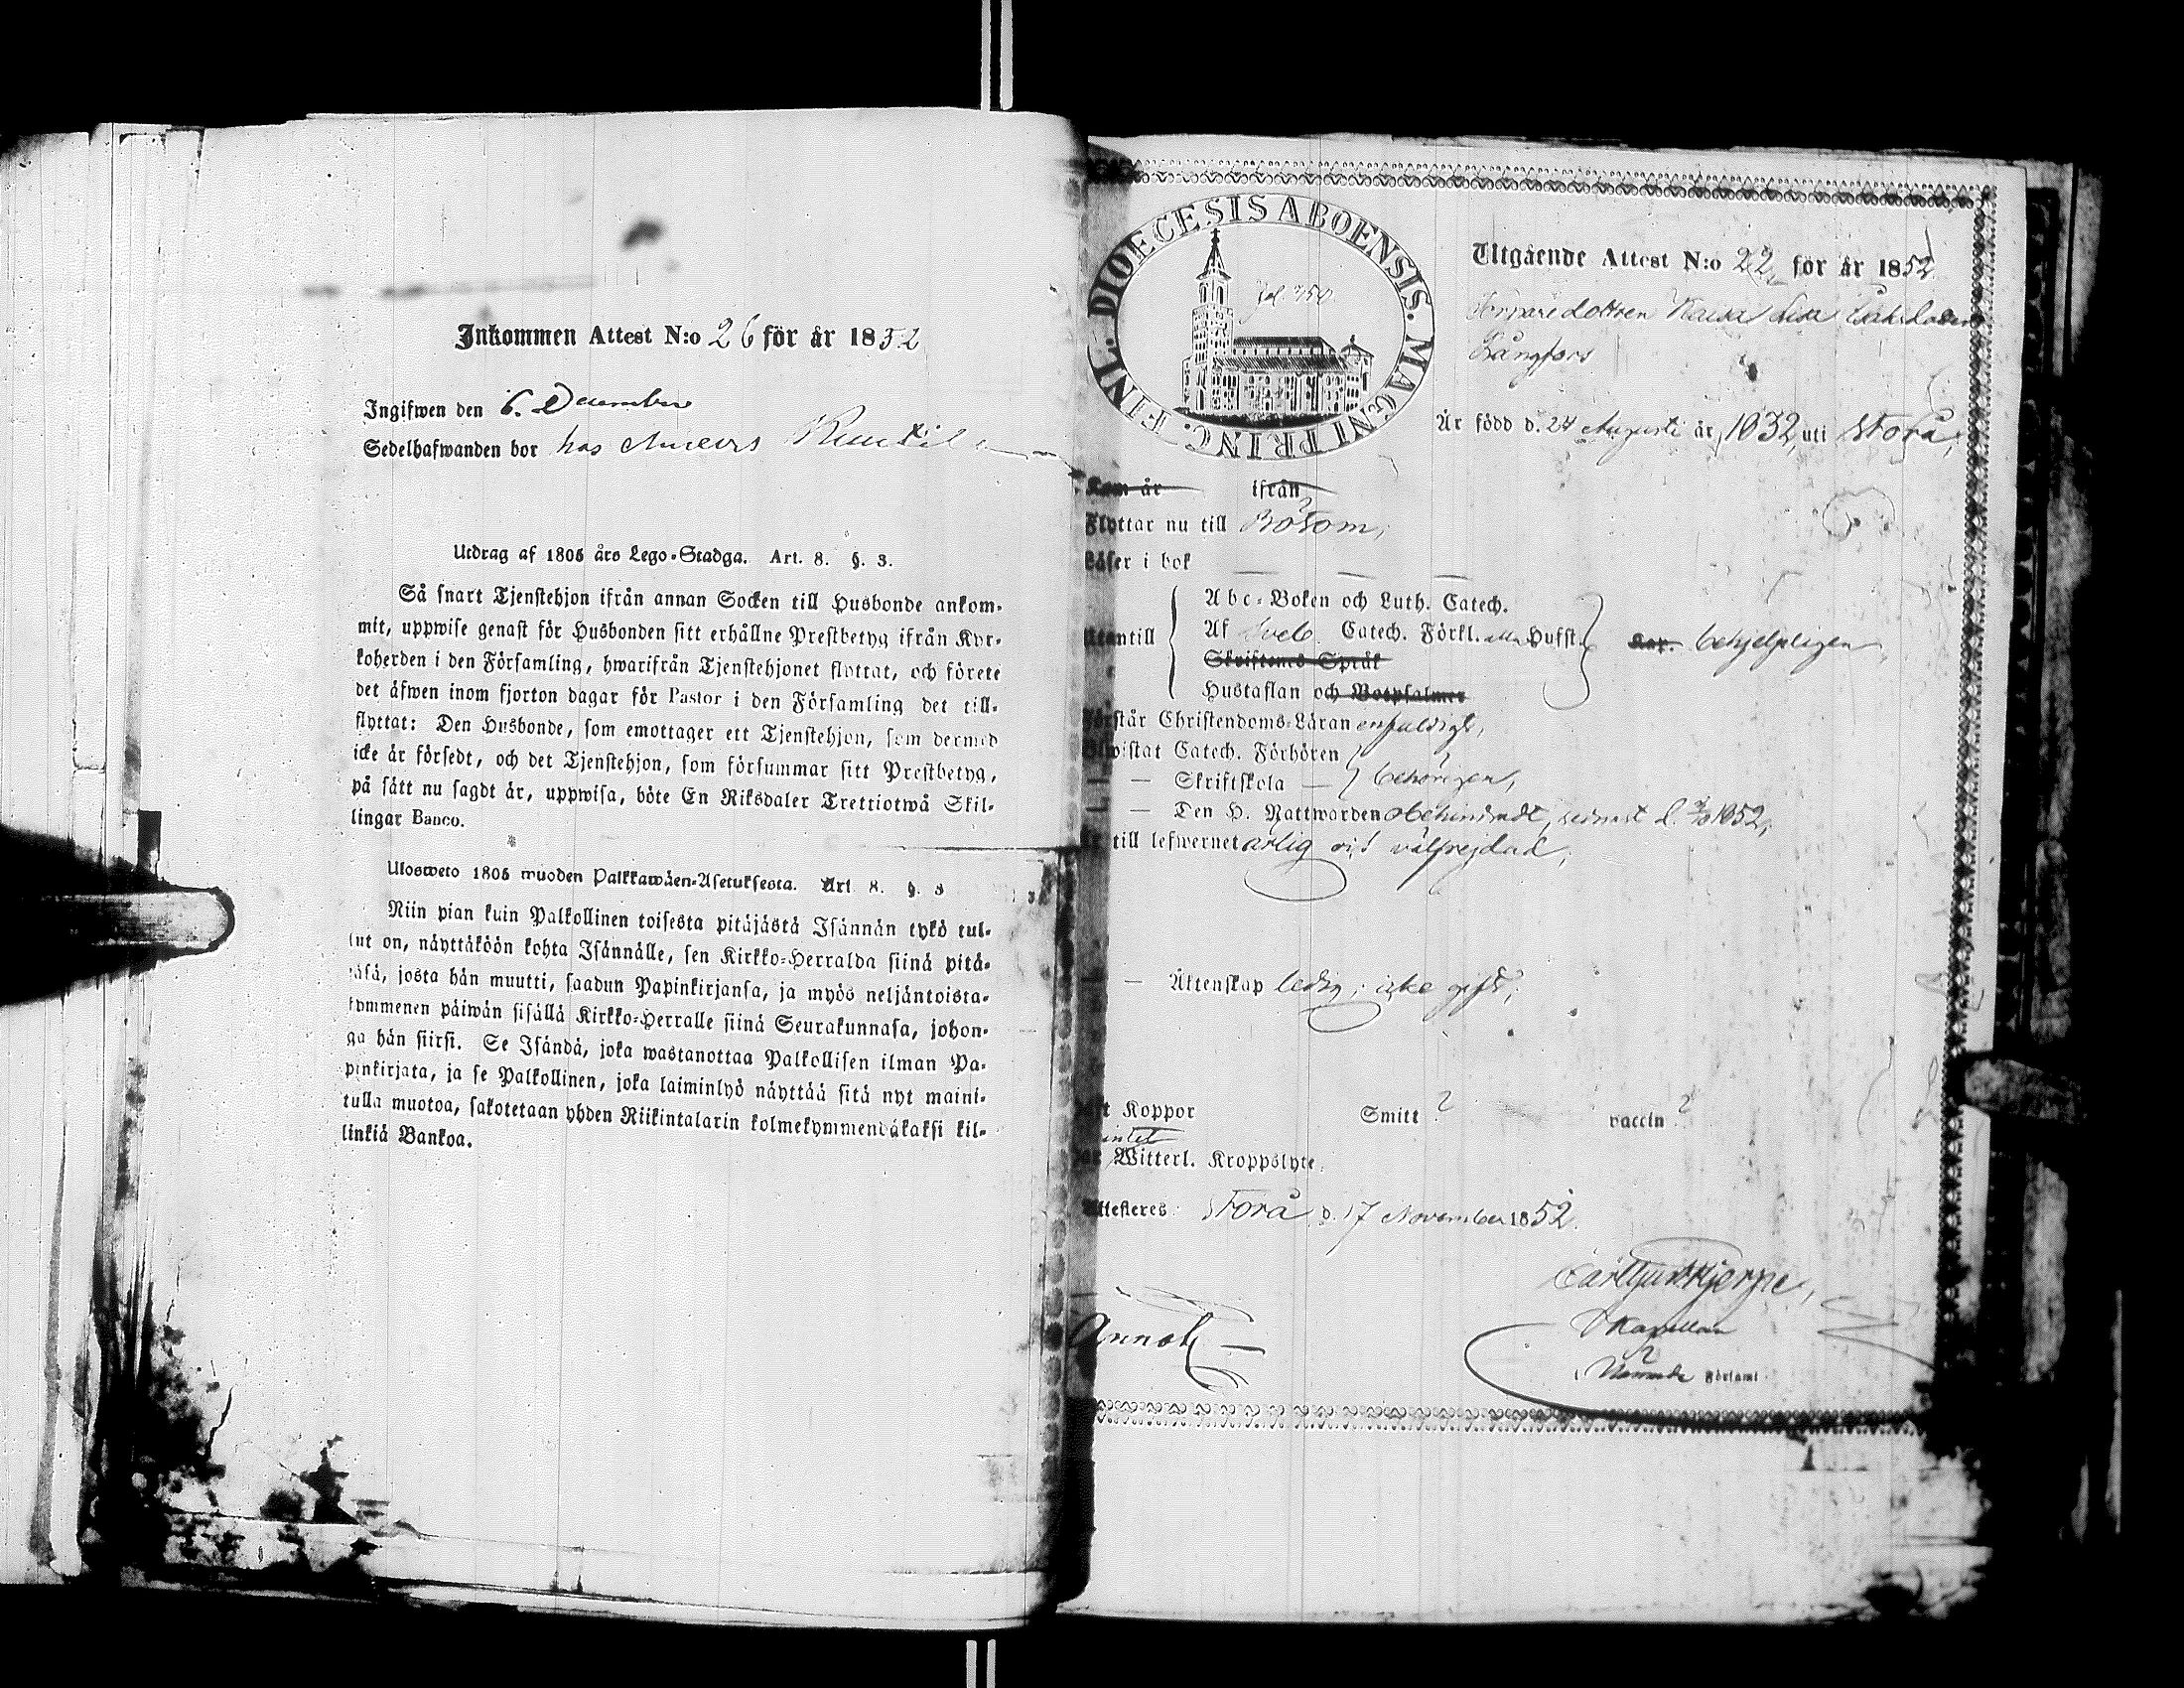 Inkommen Attest N:o 26 för år 1852
Ingifwen den 6. December
Sedelhafwanden bor hos
Utdrag af 1805 års Lego-Stadga. Art. 8. §. 3.
Så snart Tjenstehjon ifrån annan Socken till Husbonde ankom-
mit, uppwise genast för Husbonden sitt erhållne Prestbetyg ifrån Kyr-
koherden i den Församling, hwarifrån Tjenstehjonet flyttat, och förete
det äfwen inom fjorton dagar för Pastor i den Församling det till-
flyttat: Den Husbonde, som emottager ett Tjenstehjon, som dermed
icke är försedt, och det Tjenstehjon, som försummar sitt Prestbetyg,
på sätt nu sagdt är, uppwisa, böte En Riksdaler Trettiotwå Skil-
lingar Banco.
Ulosweto 1805 wuoden Palkkawäen-Asetuksesta. Art. 8. §. 3
Niin pian kuin Palkollinen toisesta pitäjästä Isännän tykö tul-
lut on, näyttäköön kohta Isännälle, sen Kirkko-Herralda siinä pitä-
jäsä, josta hän muutti, saadun Papinkirjansa, ja myös neljäntoista-
kymmenen päiwän sisällä Kirkko-Herralle siinä Seurakunnasa, johon-
ga hän siirsi. Se Isändä, joka wastanottaa Palkollisen ilman Pa-
pinkirjata, ja se Palkollinen, joka laiminlyö näyttää sitä nyt maini-
tulla muotoa, sakotetaan yhden Riikintalarin kolmekymmendäkaksi kil-
linkiä Bankoa.
FINL. DIOECESIS ABOENSIS. MAGNI PRINC.
Utgående Attest N:o 22 för år 1852
Kaisa Lisa
Långfors
Är född d. 24 Augusti år 1832, uti Storå,
Kom år ifrån
Flyttar nu till Bötom,
Läser i bok
Utantill
Abc-Boken och Luth. Catech.
Af Sveb. Catech. Förkl. Hufst.
Skriftenes Språk
Hustaflan och Botpsalmer
behjelpligen,
Förstår Christendoms-Läran enfaldigt,
Biwistat Catech. Förhören
— Skriftskola — behörigen,
— Den H. Nattwarden obehindradt, sednast d. 1852,
Är till lefwernet ärlig och välfrejdad,
— Äktenskap ledig, icke gift;
Haft Koppor Smitt ? vaccin ?
intet
Har Witterl. Kroppslyte.
Attesteras: Storå d. 17 November 1852.
Kapellan
Församl.